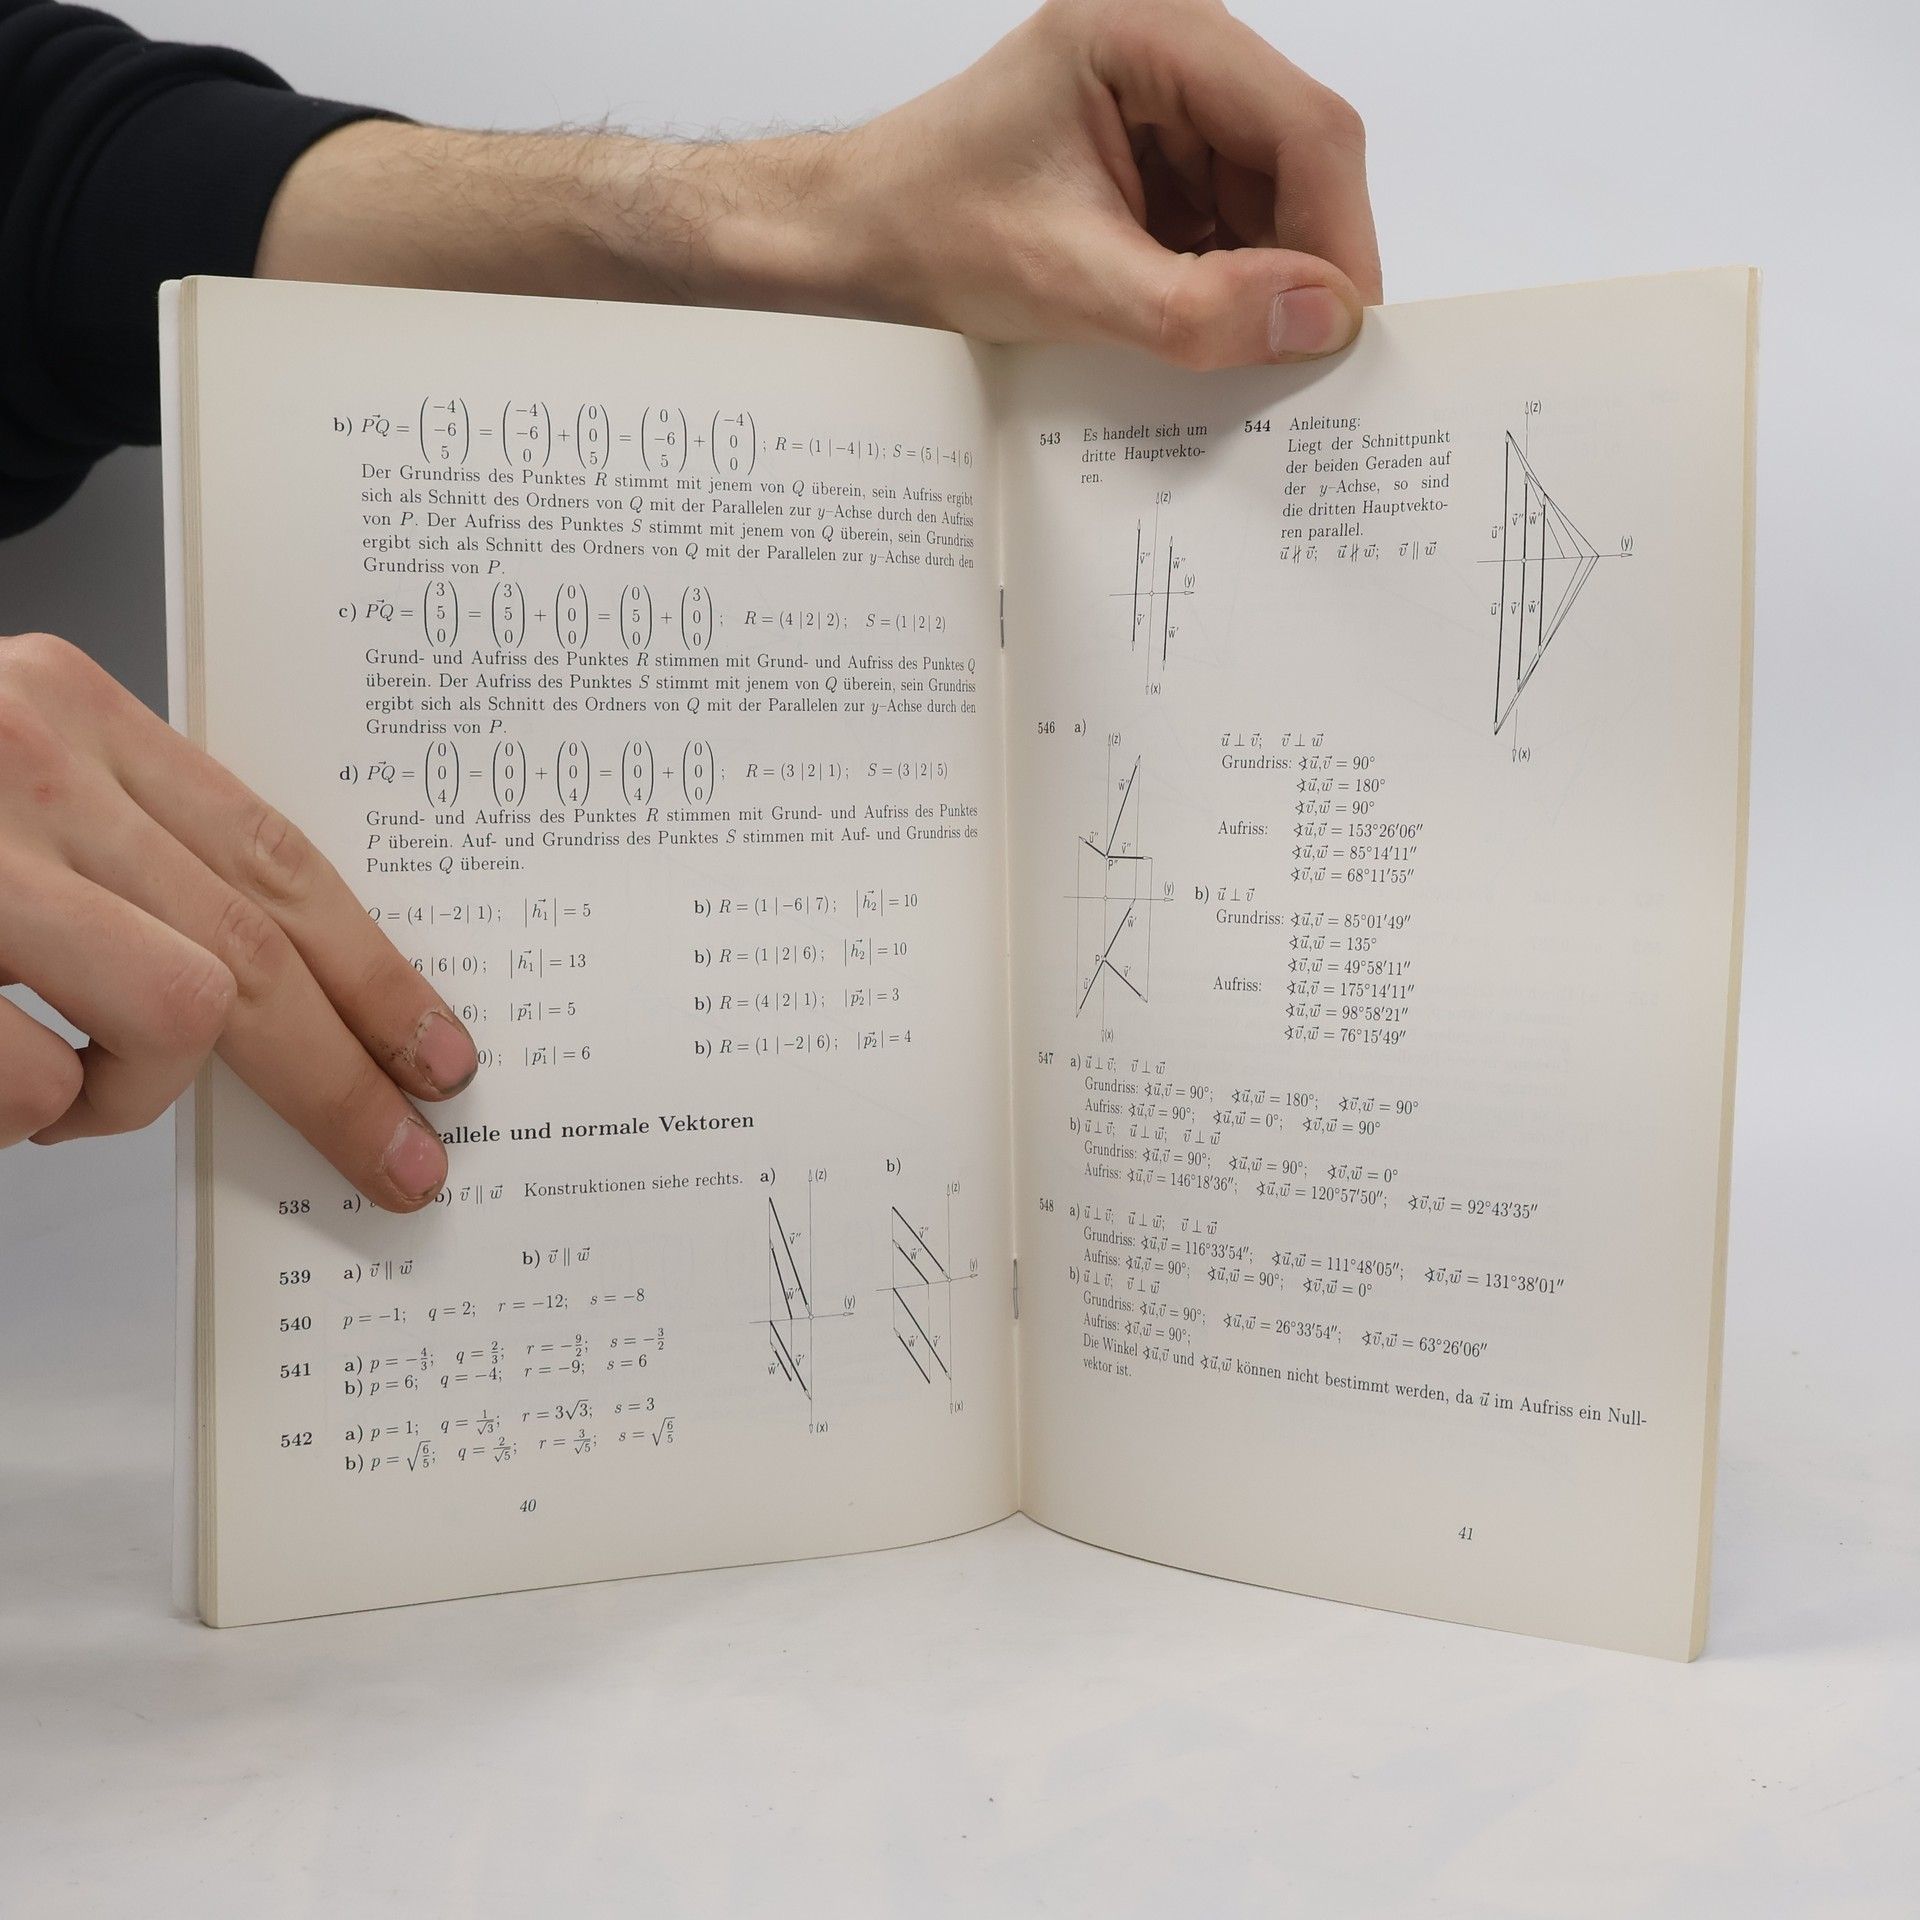 b) P⃗Q = (−4 −6 5) = (−4 −6 0) + (0 0 5) = (0 −6 5) + (−4 0 0) ; R = (1 | −4 | 1) ; S = (5 | −4 | 6)
Der Grundriss des Punktes R stimmt mit jenem von Q überein, sein Aufriss ergibt
sich als Schnitt des Ordners von Q mit der Parallelen zur y–Achse durch den Aufriss
von P. Der Aufriss des Punktes S stimmt mit jenem von Q überein, sein Grundriss
ergibt sich als Schnitt des Ordners von Q mit der Parallelen zur y–Achse durch den
Grundriss von P.
c) P⃗Q = (3 5 0) = (3 5 0) + (0 0 0) = (0 5 0) + (3 0 0) ; R = (4 | 2 | 2) ; S = (1 | 2 | 2)
Grund- und Aufriss des Punktes R stimmen mit Grund- und Aufriss des Punktes Q
überein. Der Aufriss des Punktes S stimmt mit jenem von Q überein, sein Grundriss
ergibt sich als Schnitt des Ordners von Q mit der Parallelen zur y–Achse durch den
Grundriss von P.
d) P⃗Q = (0 0 4) = (0 0 0) + (0 0 4) = (0 0 4) + (0 0 0) ; R = (3 | 2 | 1) ; S = (3 | 2 | 5)
Grund- und Aufriss des Punktes R stimmen mit Grund- und Aufriss des Punktes
P überein. Auf- und Grundriss des Punktes S stimmen mit Auf- und Grundriss des
Punktes Q überein.
Q = (4 | −2 | 1) ; |h⃗₁| = 5 b) R = (1 | −6 | 7) ; |h⃗₂| = 10
6 | 6 | 0) ; |h⃗₁| = 13 b) R = (1 | 2 | 6) ; |h⃗₂| = 10
6) ; |p⃗₁| = 5 b) R = (4 | 2 | 1) ; |p⃗₂| = 3
0) ; |p⃗₁| = 6 b) R = (1 | −2 | 6) ; |p⃗₂| = 4
rallele und normale Vektoren
538 a) b) v⃗ ∥ w⃗ Konstruktionen siehe rechts. a) b)
(z) v⃗″ w⃗″ (y) w⃗′ v⃗′ (x)
(z) v⃗″ w⃗″ (y) w⃗′ v⃗′ (x)
539 a) v⃗ ∥ w⃗ b) v⃗ ∥ w⃗
540 p = −1; q = 2; r = −12; s = −8
541 a) p = −4/3; q = 2/3; r = −9/2; s = −3/2
b) p = 6; q = −4; r = −9; s = 6
542 a) p = 1; q = 1/√3; r = 3√3; s = 3
b) p = √(6/5); q = 2/√5; r = 3/√5; s = √(6/5)
40
543 Es handelt sich um
dritte Hauptvekto-
ren.
(z) v⃗″ w⃗″ (y) v⃗′ w⃗′ (x)
544 Anleitung:
Liegt der Schnittpunkt
der beiden Geraden auf
der y–Achse, so sind
die dritten Hauptvekto-
ren parallel.
u⃗ ∦ v⃗; u⃗ ∦ w⃗; v⃗ ∥ w⃗
(z) u⃗″ v⃗″ w⃗″ (y) u⃗′ v⃗′ w⃗′ (x)
546 a)
(z) w⃗″ u⃗″ v⃗″ P″ (y) w⃗′ P′ u⃗′ v⃗′ (x)
u⃗ ⊥ v⃗; v⃗ ⊥ w⃗
Grundriss: ∢u⃗,v⃗ = 90°
∢u⃗,w⃗ = 180°
∢v⃗,w⃗ = 90°
Aufriss: ∢u⃗,v⃗ = 153°26′06″
∢u⃗,w⃗ = 85°14′11″
∢v⃗,w⃗ = 68°11′55″
b) u⃗ ⊥ v⃗
Grundriss: ∢u⃗,v⃗ = 85°01′49″
∢u⃗,w⃗ = 135°
∢v⃗,w⃗ = 49°58′11″
Aufriss: ∢u⃗,v⃗ = 175°14′11″
∢u⃗,w⃗ = 98°58′21″
∢v⃗,w⃗ = 76°15′49″
547 a) u⃗ ⊥ v⃗; v⃗ ⊥ w⃗
Grundriss: ∢u⃗,v⃗ = 90°; ∢u⃗,w⃗ = 180°; ∢v⃗,w⃗ = 90°
Aufriss: ∢u⃗,v⃗ = 90°; ∢u⃗,w⃗ = 0°; ∢v⃗,w⃗ = 90°
b) u⃗ ⊥ v⃗; u⃗ ⊥ w⃗; v⃗ ⊥ w⃗
Grundriss: ∢u⃗,v⃗ = 90°; ∢u⃗,w⃗ = 90°; ∢v⃗,w⃗ = 0°
Aufriss: ∢u⃗,v⃗ = 146°18′36″; ∢u⃗,w⃗ = 120°57′50″; ∢v⃗,w⃗ = 92°43′35″
548 a) u⃗ ⊥ v⃗; u⃗ ⊥ w⃗; v⃗ ⊥ w⃗
Grundriss: ∢u⃗,v⃗ = 116°33′54″; ∢u⃗,w⃗ = 111°48′05″; ∢v⃗,w⃗ = 131°38′01″
Aufriss: ∢u⃗,v⃗ = 90°; ∢u⃗,w⃗ = 90°; ∢v⃗,w⃗ = 0°
b) u⃗ ⊥ v⃗; v⃗ ⊥ w⃗
Grundriss: ∢u⃗,v⃗ = 90°; ∢u⃗,w⃗ = 26°33′54″; ∢v⃗,w⃗ = 63°26′06″
Aufriss: ∢v⃗,w⃗ = 90°;
Die Winkel ∢u⃗,v⃗ und ∢u⃗,w⃗ können nicht bestimmt werden, da u⃗ im Aufriss ein Null-
vektor ist.
41